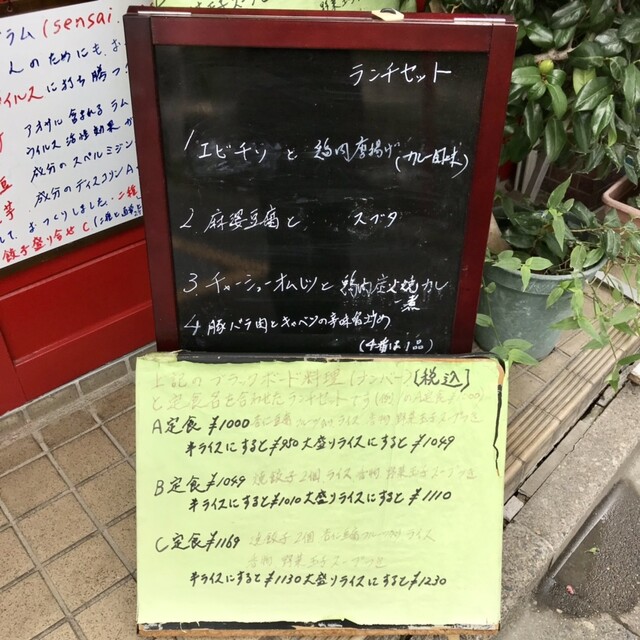 ラム (sensai
人のためにも、お
イルスに打ち勝つ
アオサに含まれるラム
ウイルス活性効果が
成分のスペルミジン
成分のディスコリンA
おつくりしました。二種
餃子盛り合せC (
ランチセット
1. エビチリと 鶏肉唐揚げ(カレー風味)
2. 麻婆豆腐と スブタ
3. チャーシューオムレツと 鶏肉炭火焼カレー
煮
4. 豚バラ肉とキャベツの辛味噌炒め
(4番は1品)
上記のブラックボード料理(ナンバー)(税込)
と定食名を合わせたランチセットです(例)
A定食 ¥1000 杏仁豆腐 ライス 香物 野菜玉子スープ付
半ライスにすると¥950 大盛りライスにすると ¥1049
B定食 ¥1049 焼餃子2個 ライス 香物 野菜玉子スープ付
半ライスにすると¥1010 大盛りライスにすると ¥1110
C定食 ¥1169 焼餃子2個 杏仁豆腐 ライス
香物 野菜玉子スープ付
半ライスにすると¥1130 大盛りライスにすると ¥1230